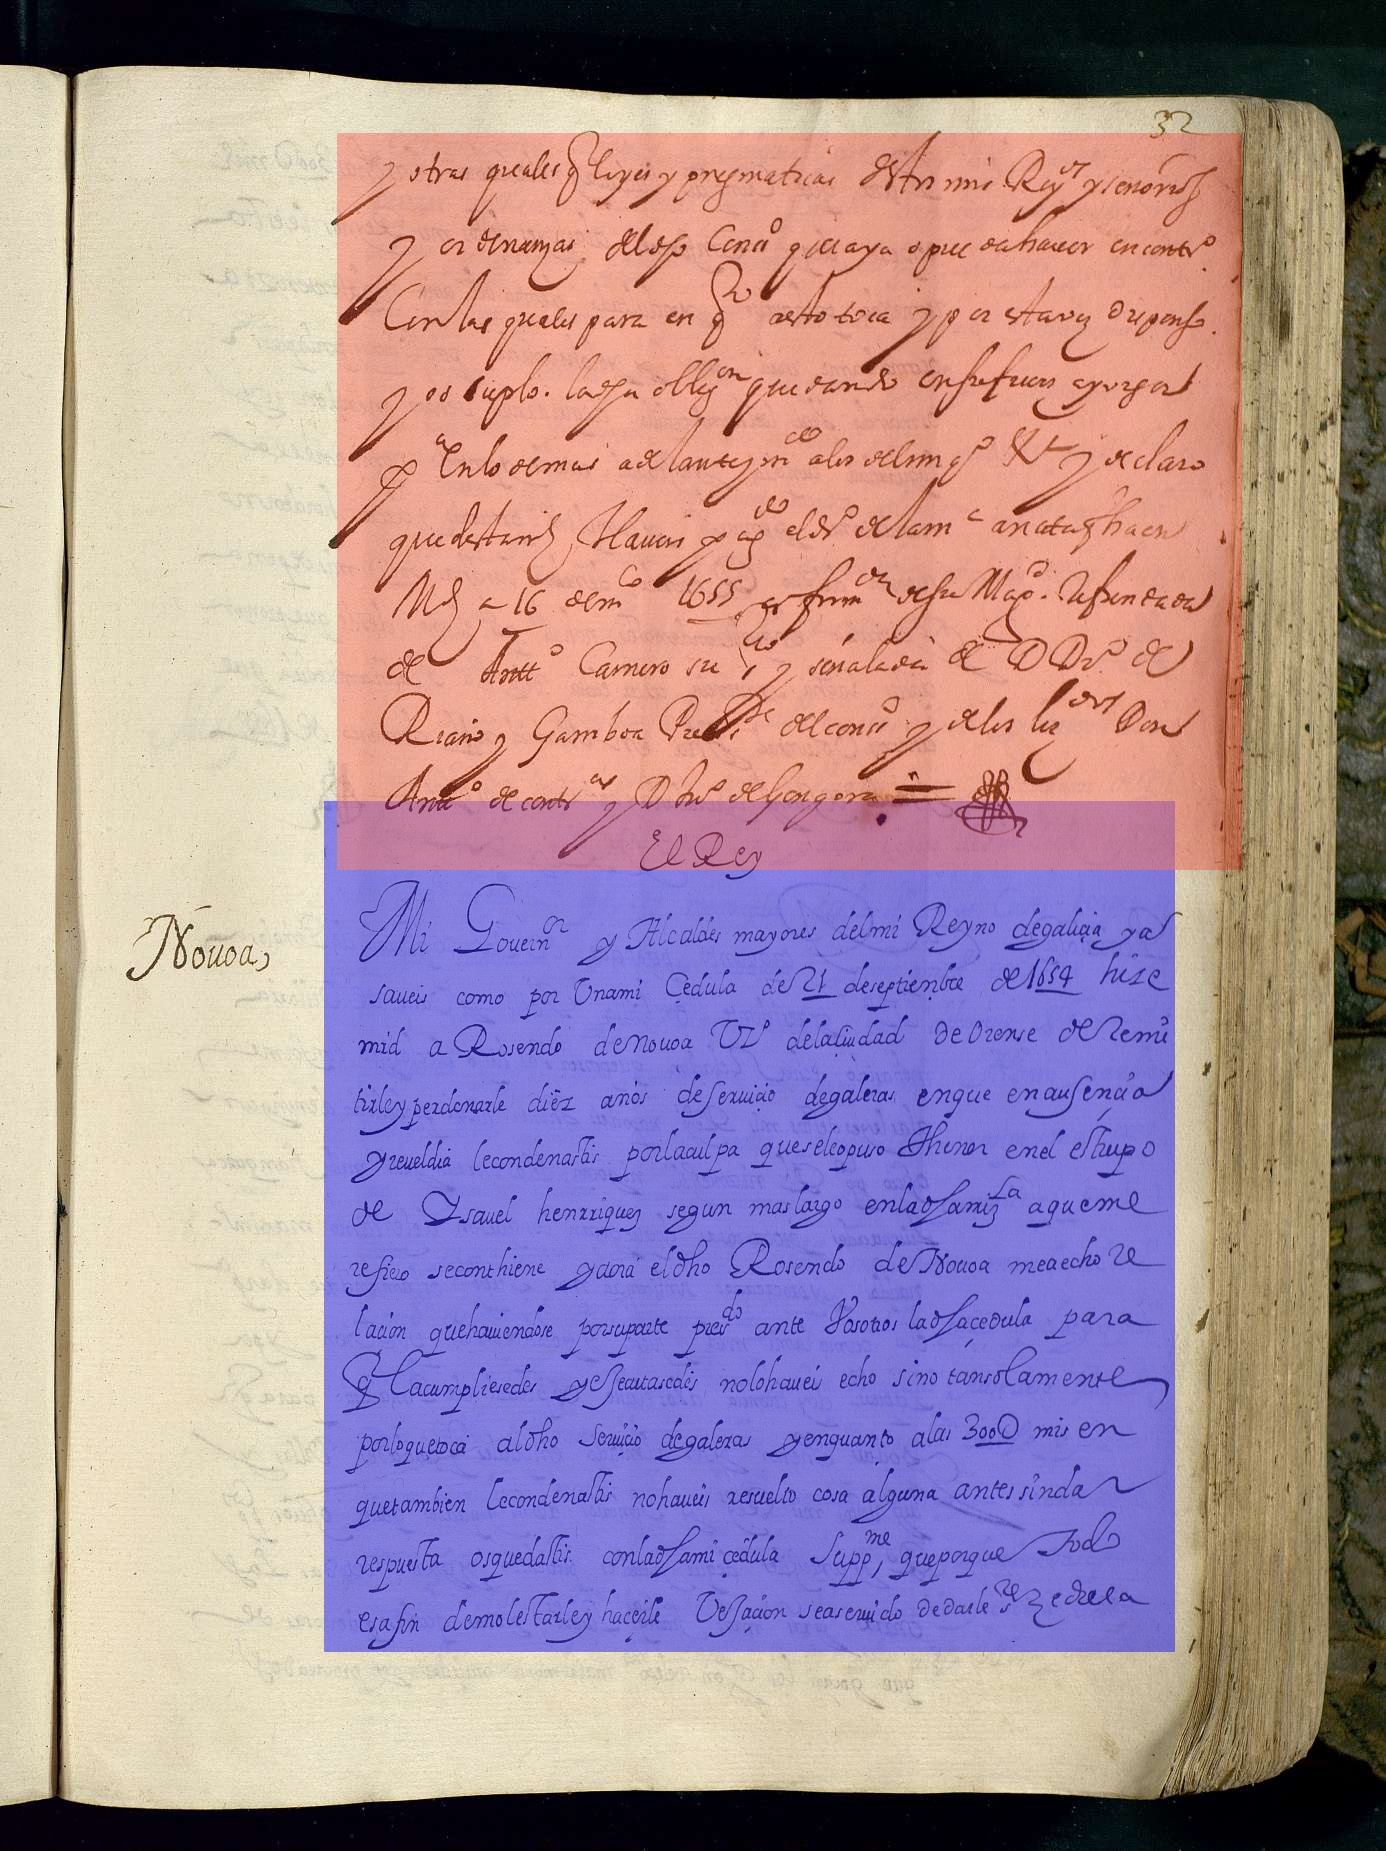 32
y otras qualesq leyes y pregmaticas destos mis Reyos y senorios
y ordenanzas del dho Conso que aya o pueda haver en contro
Con las quales para en qto a esto toca y por esta vez dispenso
y os suplo. la dha obligon quedando en su fuerza y vigor
pa en lo demas adelante
y declaro
que desta mrd haveis pagdo el dro de la ma anata fha en
Md a 16 de mco 1655 por
refrendada
de Antto Carnero su srio y señalada de D Do de
Riaño y Gamboa Preside del conso y de los lizdos Don
Antto de contras y D Juo de Gongora =
El Rey
Nouoa,
Mi Gouernor y Alcaldes mayores del mi Reyno de galicia ya
saueis como por Vna mi Çedula de 21 de septienbre de 1654 hize
mrd a Rosendo de Nouoa Vzo de la çiudad de Orense de Remi
tirle y perdonarle diez años de seruiçio de galeras en que en ausençia
y reueldia le condenastis por la culpa que se le opuso Thener en el estrupo
de Ysauel henrriquez segun mas largo en la dha mi za a que me
refiero se conthiene y aora el dho Rosendo de Nouoa me a echo re
laçion que hauiendose por su parte presdo ante Vosotros la dha çedula para
q la cumpliesedes y executasedes no lo haueis echo sino tan solamente
por lo que toca al dho seruiçio de galeras y en quanto a las 300D mrs en
que tambien le condenastis no haueis resuelto cosa alguna antes sin dar
respuesta os quedastis con la dha mi çedula suppme que porque Todo
es a fin de molestarle y haçerle Vejaçion sea seruido de darle sre zedula